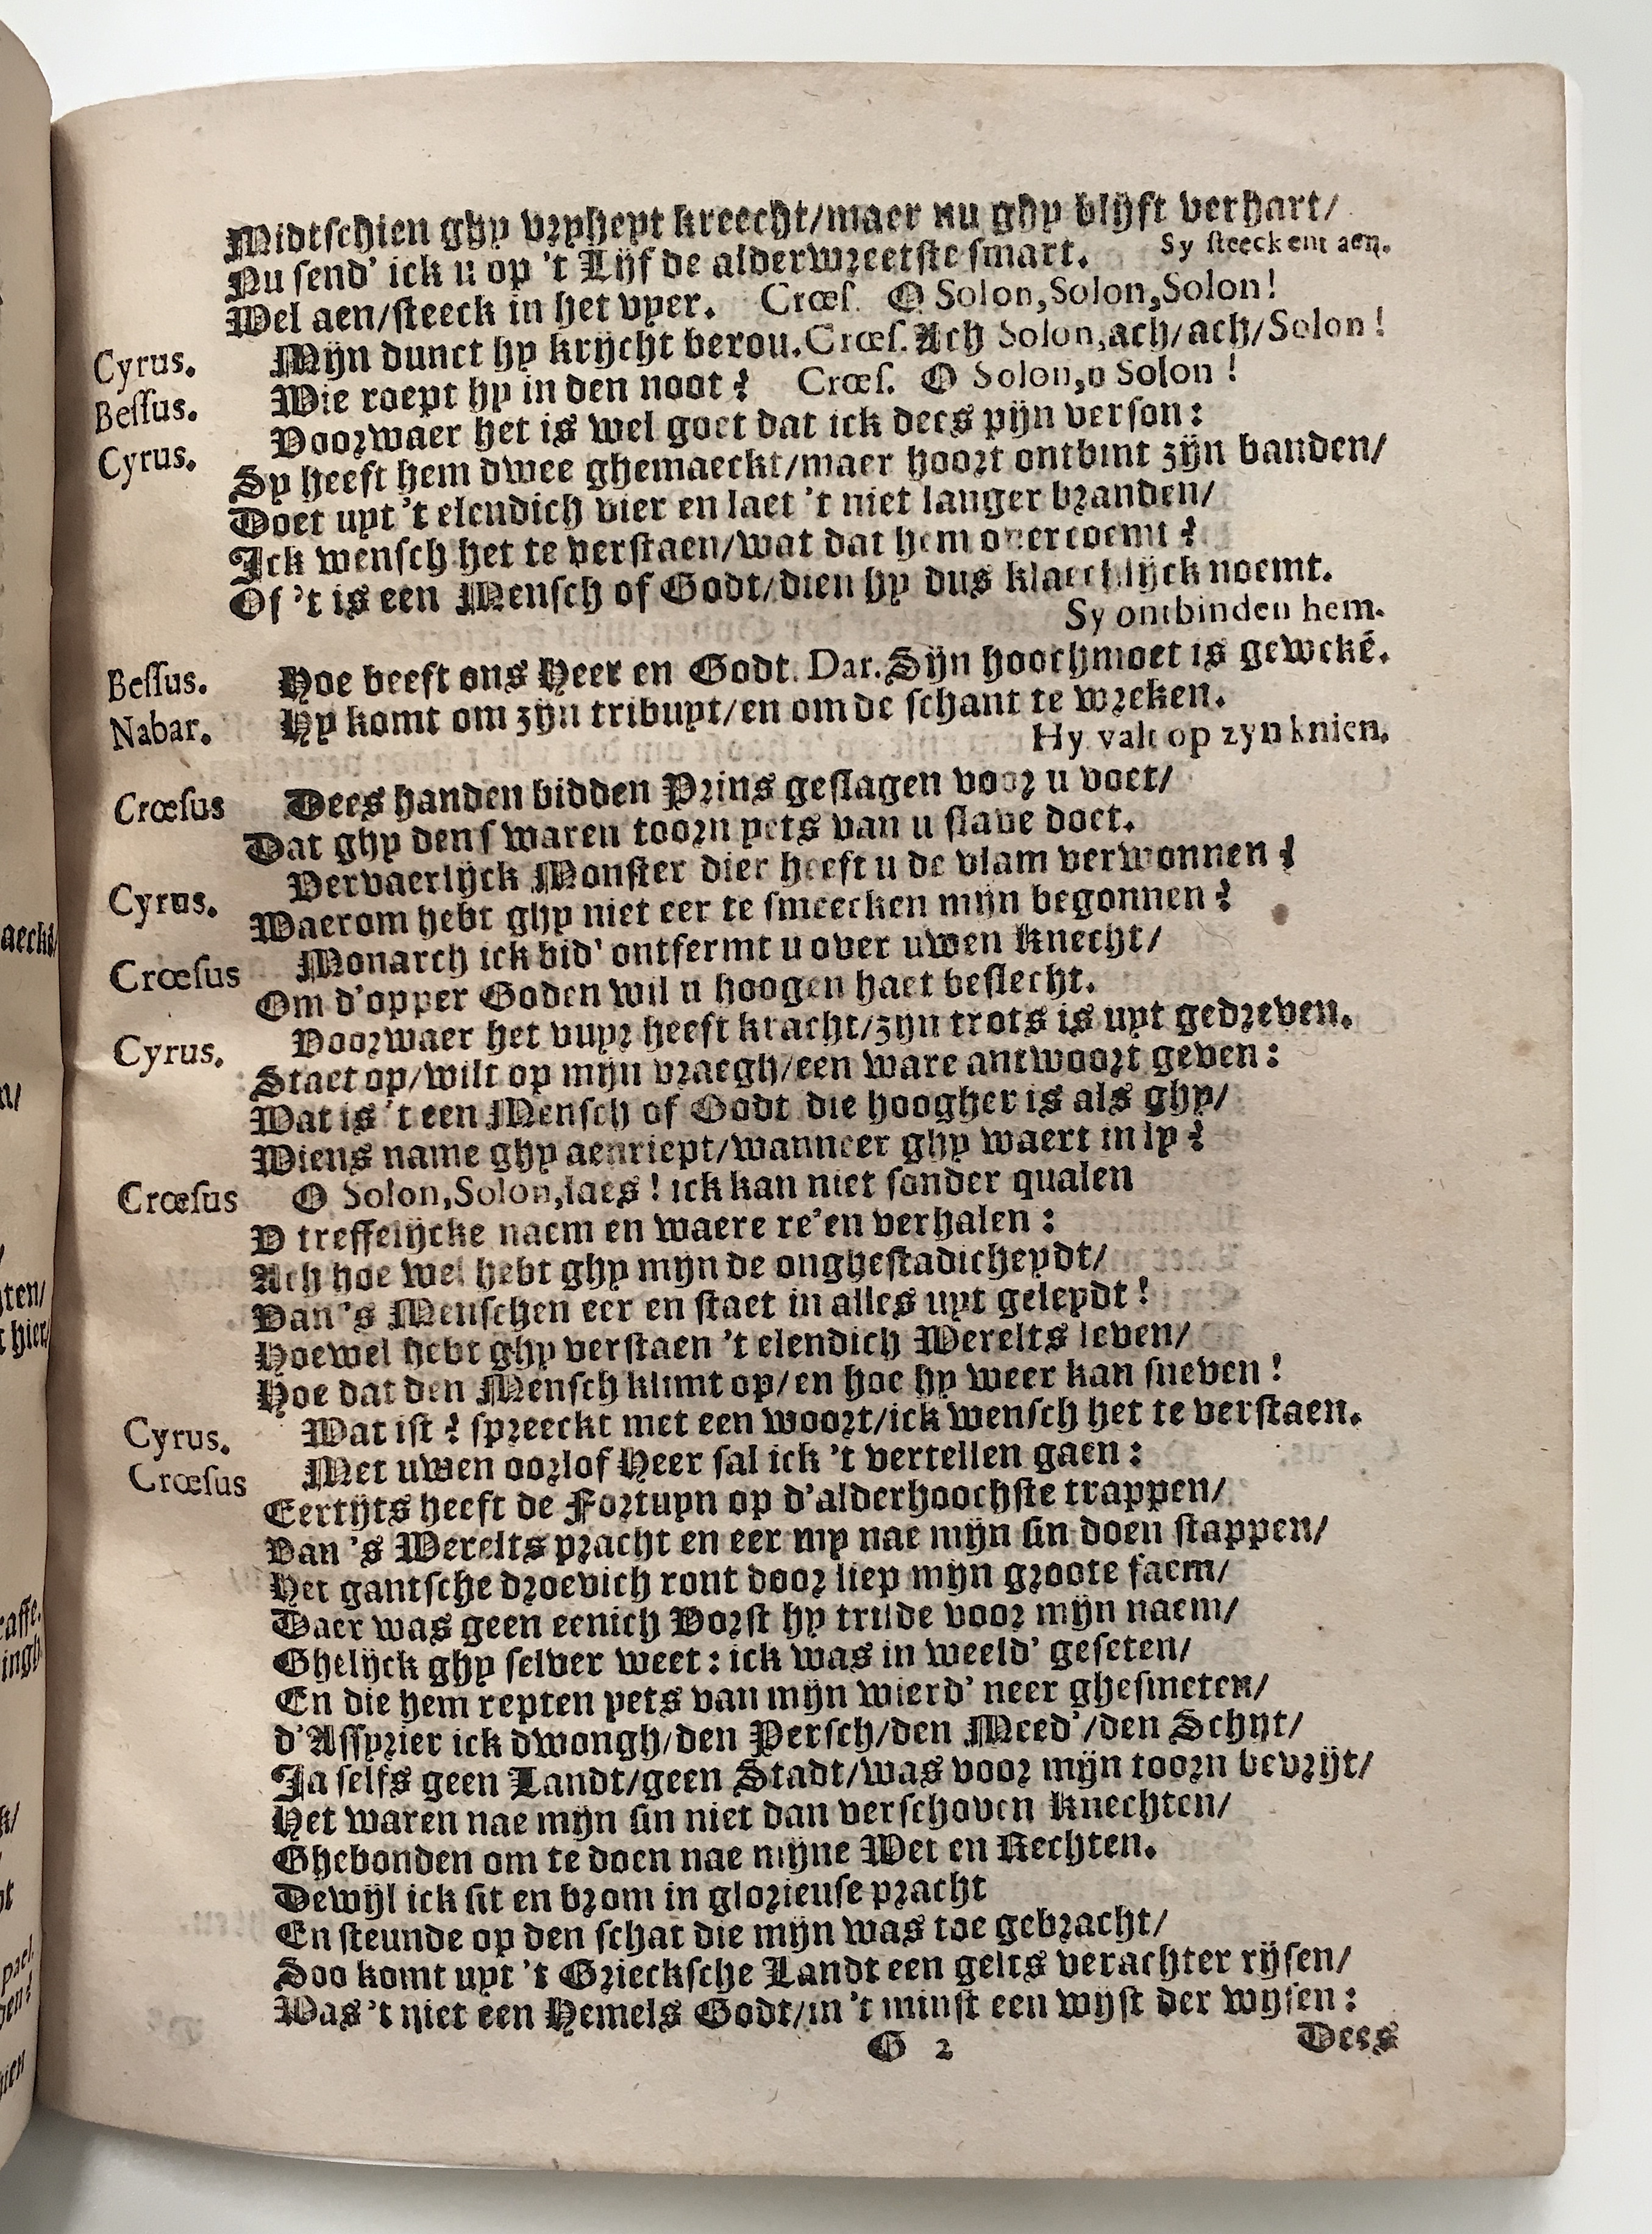 Midtschien ghy vryheyt kreecht/maer nu ghy blijft verhart/
Nu send' ick u op 't Lijf de alderwreetste smart. Sy steecken aen.
Wel aen/steeck in het vyer. Crœs. O Solon, Solon, Solon!
Cyrus. Mijn dunct hy krijcht berou. Crœs. Ach Solon, ach/ach/Solon!
Bessus. Wie roept hy in den noot? Crœs. O Solon, o Solon!
Cyrus. Voorwaer het is wel goet dat ick dees pijn verson:
Sy heeft hem dwee ghemaeckt/maer hoort ontbint zijn banden/
Doet uyt 't elendich vier en laet 't niet langer branden/
Ick wensch het te verstaen/wat dat hem overcoemt?
Of 't is een Mensch of Godt/dien hy dus klaechlijck noemt.
Sy ontbinden hem.
Bessus. Hoe beeft ons Heer en Godt. Dar. Sijn hoochmoet is gewekē.
Nabar. Hy komt om zijn tribuyt/en om de schant te wreken.
Hy valt op zyn knien.
Crœsus Dees handen bidden Prins geslagen voor u voet/
Dat ghy den swaren toorn yets van u slave doet.
Cyrus. Vervaerlijck Monster dier heeft u de vlam verwonnen?
Waerom hebt ghy niet eer te smeecken mijn begonnen?
Crœsus Monarch ick bid' ontfermt u over uwen Knecht/
Om d'opper Goden wil u hoogen haet beslecht.
Cyrus. Voorwaer het vuyr heeft kracht/zijn trots is uyt gedreven.
Staet op/wilt op mijn vraegh/een ware antwoort geven:
Wat is 't een Mensch of Godt die hoogher is als ghy/
Wiens name ghy aenriept/wanneer ghy waert in ly?
Crœsus O Solon, Solon, laes! ick kan niet sonder qualen
V treffelijcke naem en waere re'en verhalen:
Ach hoe wel hebt ghy mijn de onghestadicheydt/
Van 's Menschen eer en staet in alles uyt geleydt!
Hoewel hebt ghy verstaen 't elendich Werelts leven/
Hoe dat den Mensch klimt op/en hoe hy weer kan sneven!
Cyrus. Wat ist? spreeckt met een woort/ick wensch het te verstaen.
Crœsus Met uwen oorlof Heer sal ick 't vertellen gaen:
Eertijts heeft de Fortuyn op d'alderhoochste trappen/
Van 's Werelts pracht en eer my nae mijn sin doen stappen/
Het gantsche droevich ront door liep mijn groote faem/
Daer was geen eenich Vorst hy trilde voor mijn naem/
Ghelijck ghy selver weet: ick was in weeld' geseten/
En die hem repten yets van mijn wierd' neer ghesmeten/
d'Assyrier ick dwongh/den Persch/den Meed'/den Schyt/
Ja selfs geen Landt/geen Stadt/was voor mijn toorn bevrijt/
Het waren nae mijn sin niet dan verschoven Knechten/
Ghebonden om te doen nae mijne Wet en Rechten.
Dewijl ick sit en brom in glorieuse pracht
En steunde op den schat die mijn was toe gebracht/
Soo komt uyt 't Griecksche Landt een gelts verachter rijsen/
Was 't niet een Hemels Godt/in 't minst een wijst der wijsen:
G 2 Dees